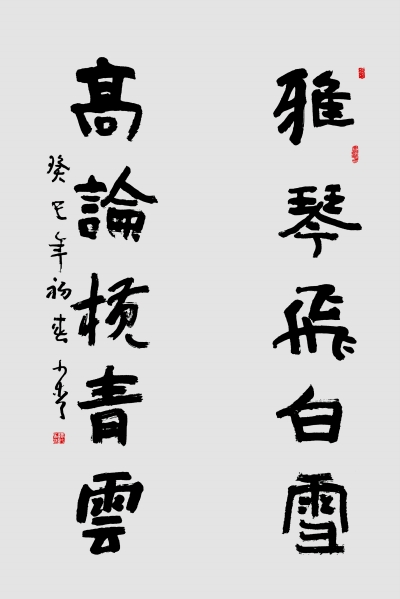 雅琴飛白雪
高論橫青雲
癸巳年初春